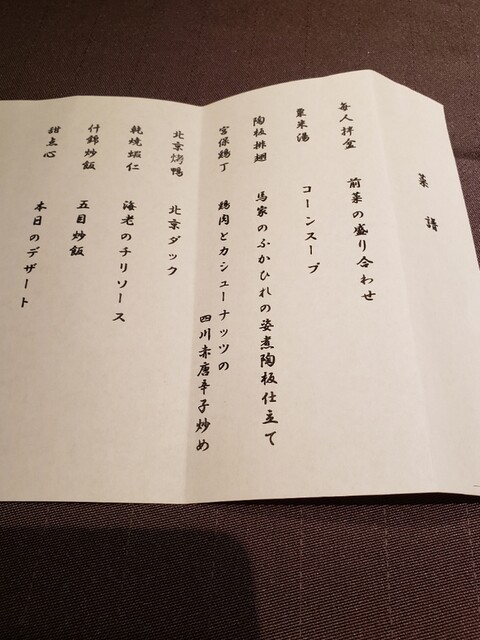 菜譜
每人拌盆 前菜の盛り合わせ
粟米湯 コーンスープ
陶板排翅 馬家のふかひれの姿煮陶板仕立て
宮保鶏丁 鶏肉とカシューナッツの
四川赤唐辛子炒め
北京烤鴨 北京ダック
乾焼蝦仁 海老のチリソース
什錦炒飯 五目炒飯
甜点心 本日のデザート